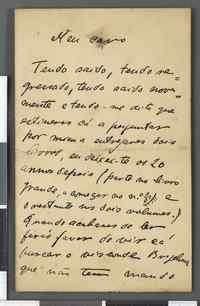 Meu caro
Tendo saido, tendo re-
gressado, tendo saido nova-
mente e tendo-me dito que
estiveras cá a perguntar
por mim e entregaras dois
livros, eu deixei-te os 20
annos depois (parte no livro
grande, a começar no n.º e
o restante nos dois volumes.)
Quando acabares de ler
farás favor de vir cá
buscar o visconde
que não tem mando